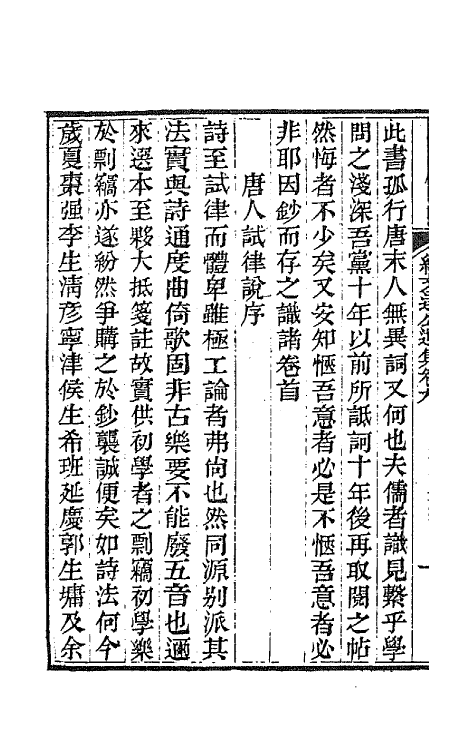 紀文達公遺集卷九
此書孤行唐末人無異詞又何也夫儒者識見繫乎學
問之淺深吾黨十年以前所詆訶十年後再取閱之帖
然悔者不少矣又安知愜吾意者必是不愜吾意者必
非耶因鈔而存之識諸卷首
唐人試律說序
詩至試律而體卑雖極工論者弗尚也然同源別派其
法實與詩通度曲倚歌固非古樂要不能廢五音也邇
來選本至夥大抵箋註故實供初學者之剽竊初學樂
於剽竊亦遂紛然爭購之於鈔襲誠便矣如詩法何今
歲夏棗强李生清彥寧津侯生希班延慶郭生墉及余